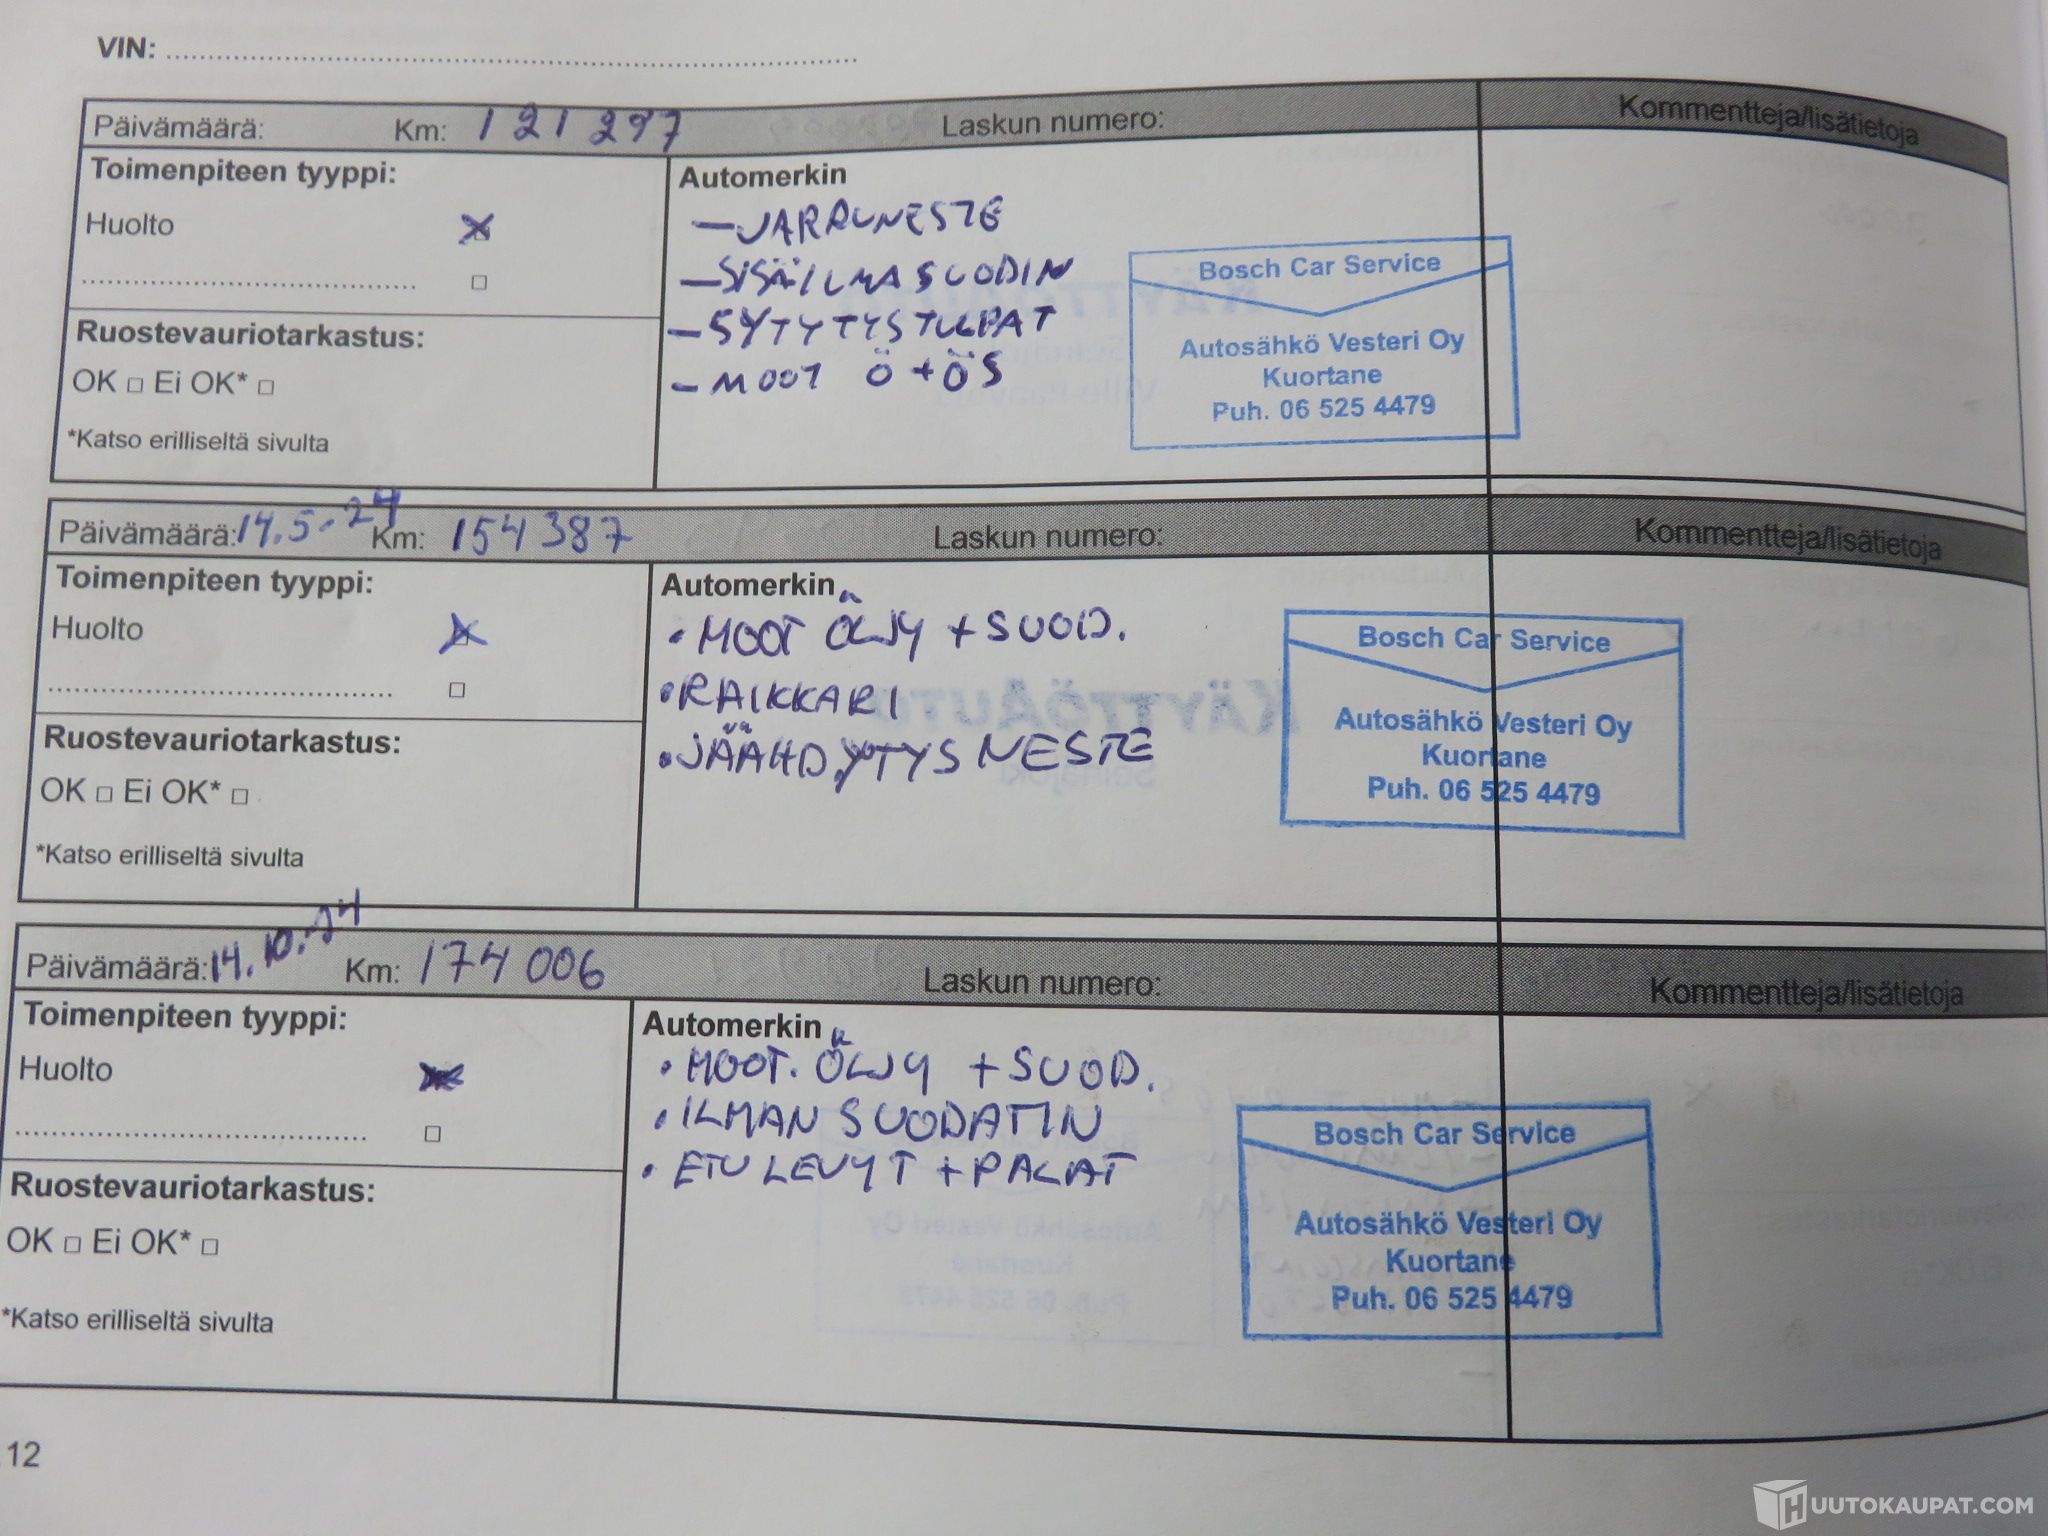 VIN: ........................................
Päivämäärä: Km: 121 297 Laskun numero: Kommentteja/lisätietoja
Toimenpiteen tyyppi:
Huolto
Ruostevauriotarkastus:
OK □ Ei OK* □
*Katso erilliseltä sivulta
Automerkin
- JARRUNESTE
- SISÄILMASUODIN
- SYTYTYSTULPAT
- MOOT Ö + ÖS
Bosch Car Service
Autosähkö Vesteri Oy
Kuortane
Puh. 06 525 4479
Päivämäärä: 14.5.-24 Km: 154 387 Laskun numero: Kommentteja/lisätietoja
Toimenpiteen tyyppi:
Huolto
Ruostevauriotarkastus:
OK □ Ei OK* □
*Katso erilliseltä sivulta
Automerkin
• MOOT ÖLJY + SUOD.
• RAIKKARI
• JÄÄHDYTYSNESTE
Bosch Car Service
Autosähkö Vesteri Oy
Kuortane
Puh. 06 525 4479
Päivämäärä: 14.10.-24 Km: 174 006 Laskun numero: Kommentteja/lisätietoja
Toimenpiteen tyyppi:
Huolto
Ruostevauriotarkastus:
OK □ Ei OK* □
*Katso erilliseltä sivulta
Automerkin
• MOOT. ÖLJY + SUOD.
• ILMAN SUODATIN
• ETULEVYT + PALAT
Bosch Car Service
Autosähkö Vesteri Oy
Kuortane
Puh. 06 525 4479
12
HUUTOKAUPAT.COM